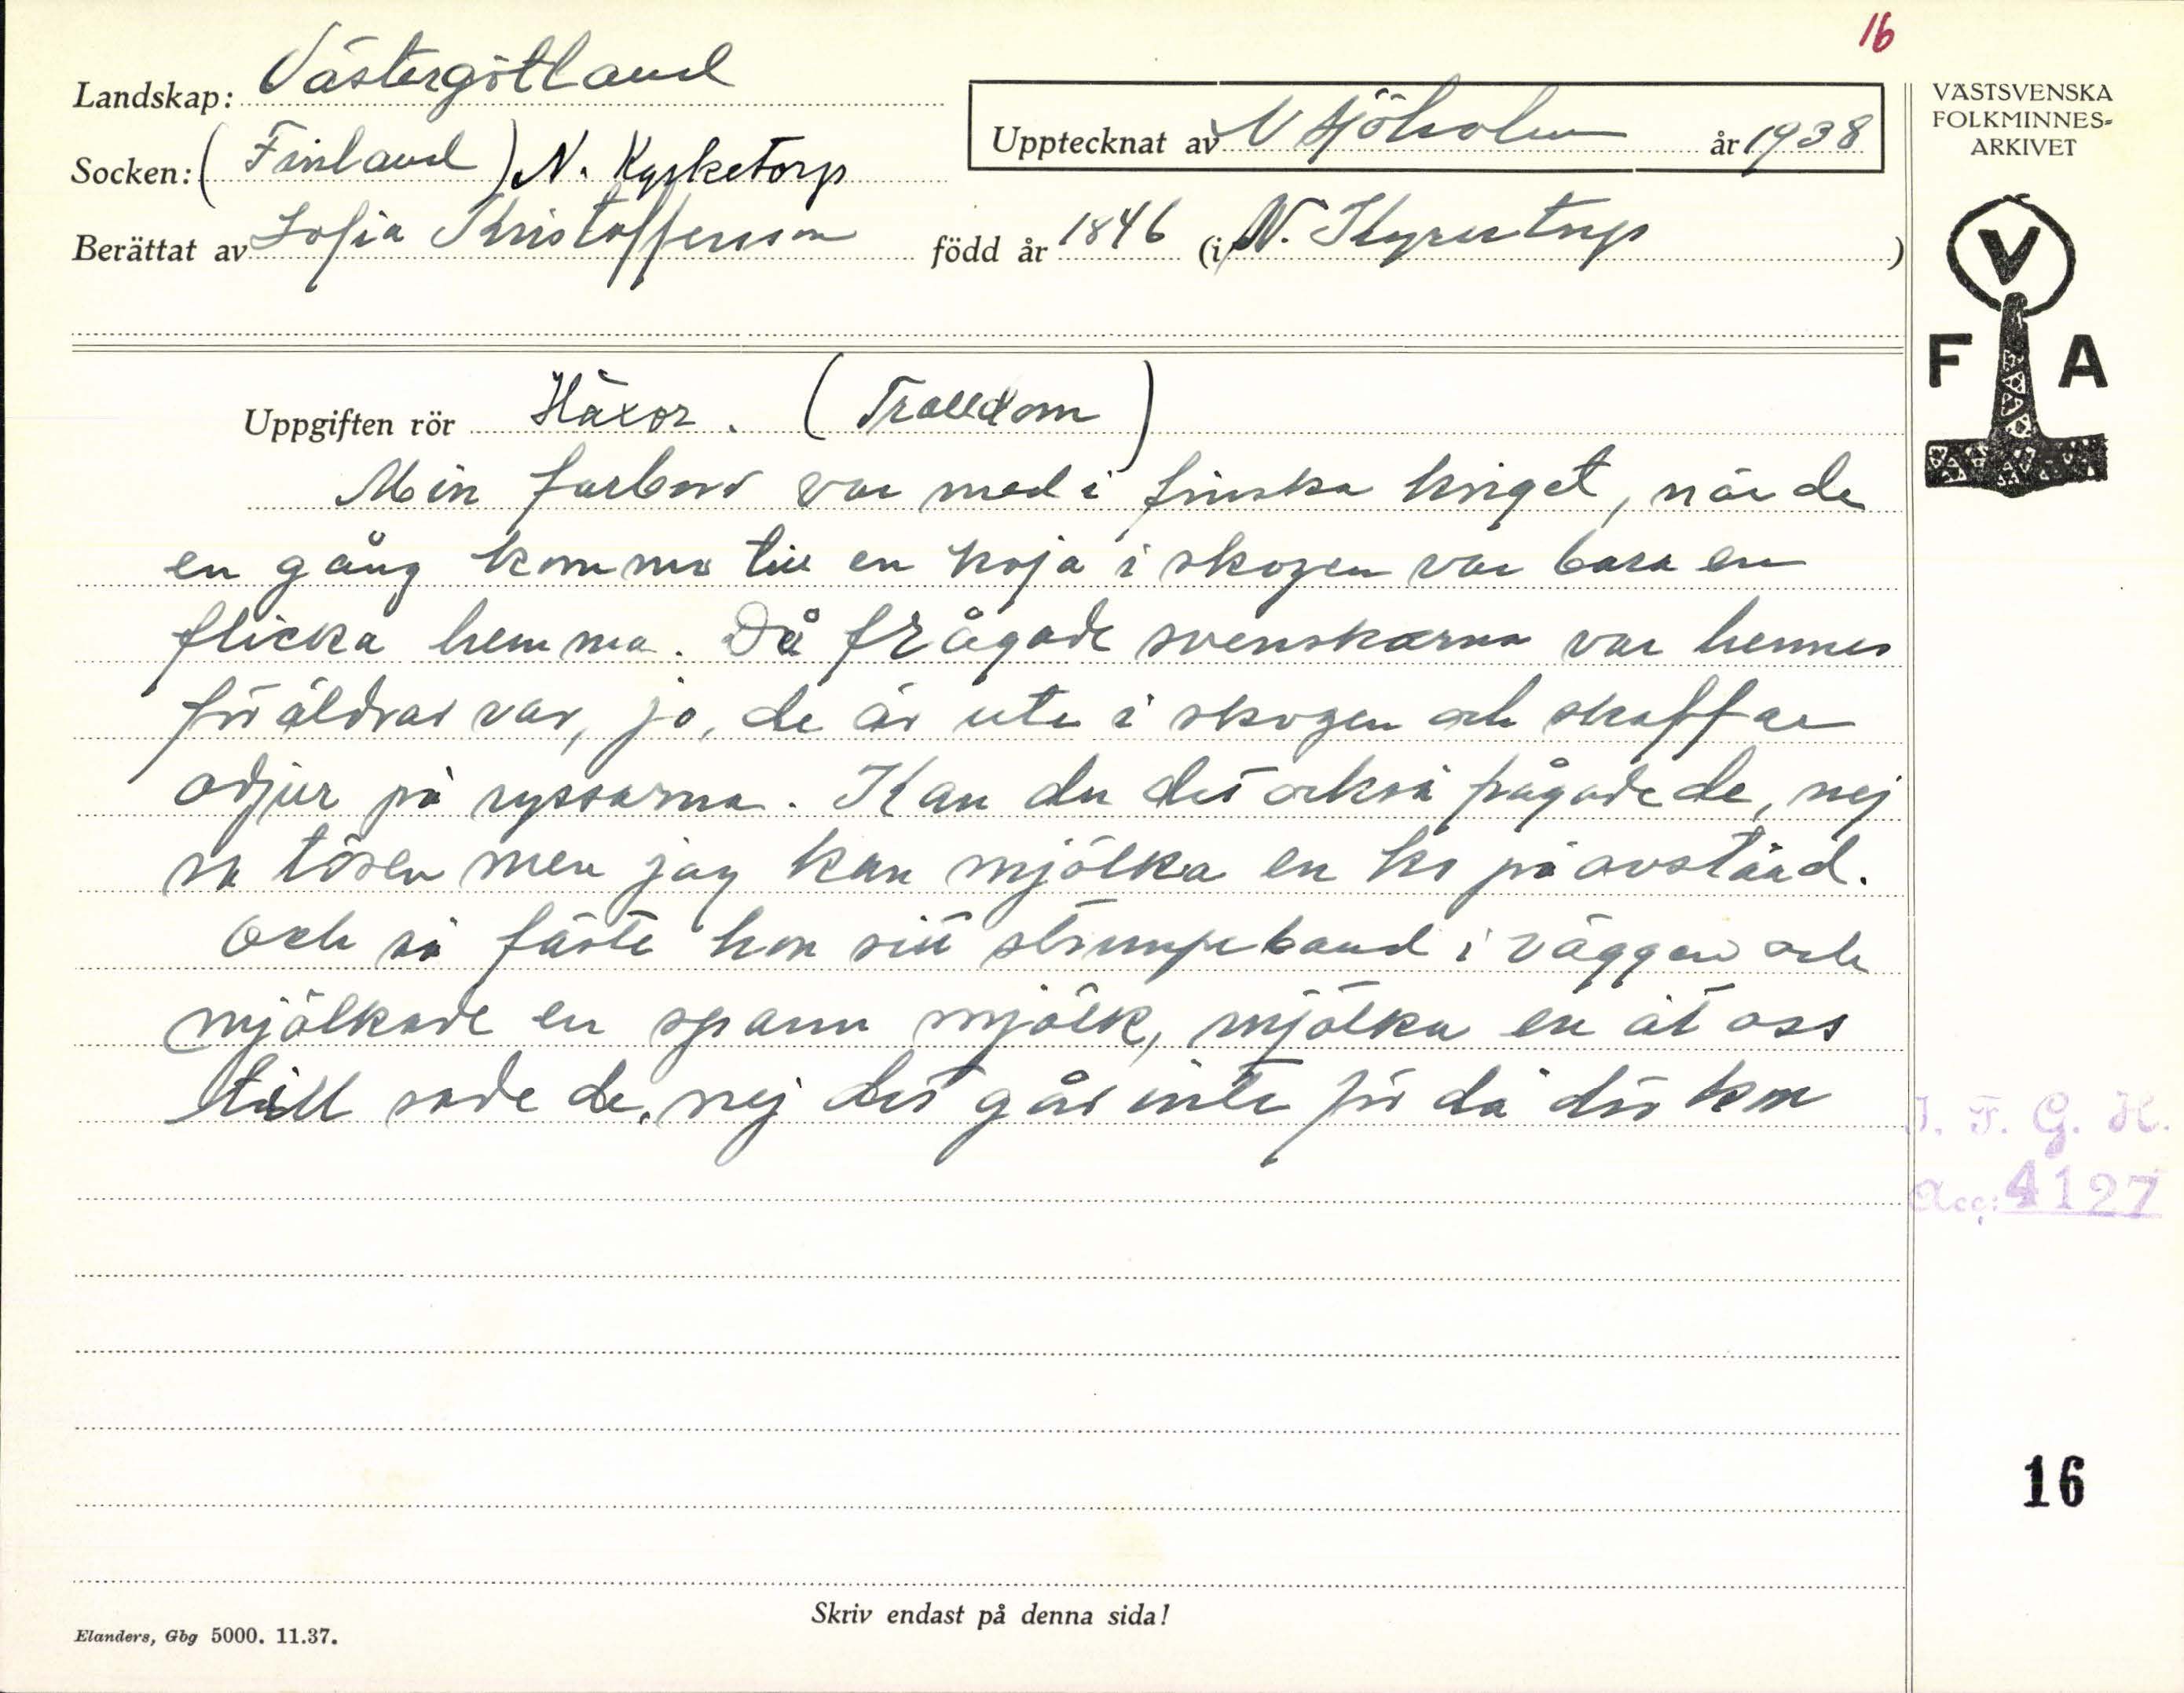 16
Landskap: Västergötland
Socken: (Finland) N. Kyrketorp
Upptecknat av N Sjöholm år 1938
Berättat av Sofia Kristoffersson född år 1846 (i N. Kyrketorp)
VÄSTSVENSKA
FOLKMINNES-
ARKIVET
V
F A
Uppgiften rör Häxor. (Trolldom)
Min farbror var med i finska kriget, när de
en gång kommo till en koja i skogen var bara en
flicka hemma. Då frågade svenskarna var hennes
föräldrar var, jo, de är ute i skogen och skaffar
odjur på ryssarna. Kan du det också frågade de, nej
sa tösen men jag kan mjölka en ko på avstånd.
Och så fäste hon sitt strumpeband i väggen och
mjölkade en spann mjölk, mjölka en åt oss
till sade de, nej det går inte för då dör kon
I. F. G. H.
Acc: 4127
16
Skriv endast på denna sida!
Elanders, Gbg 5000. 11.37.